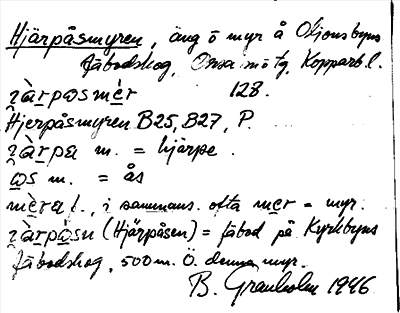 Hjärpåsmyren, äng o myr å Oljonsbyns
fäbodskog, Orsa sn o tg, Kopparb. l.
ʒàrpɷsmèr 128.
Hjerpåsmyren B25, B27, P.
ʒàrpa m. = hjärpe.
ɷs m. = ås
mèra f., i sammans. ofta mer = myr.
ʒàrpòsn (Hjärpåsen) = fäbod på Kyrkbyns
fäbodskog, 500 m. Ö. denna myr.
B. Granholm 1946